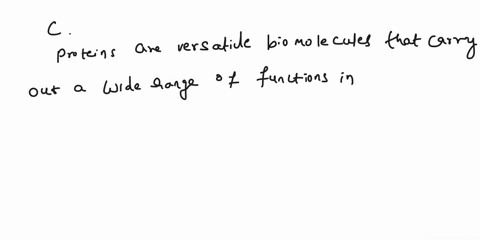 C.
Proteins are versatile biomolecules that carry
out a wide range of functions in